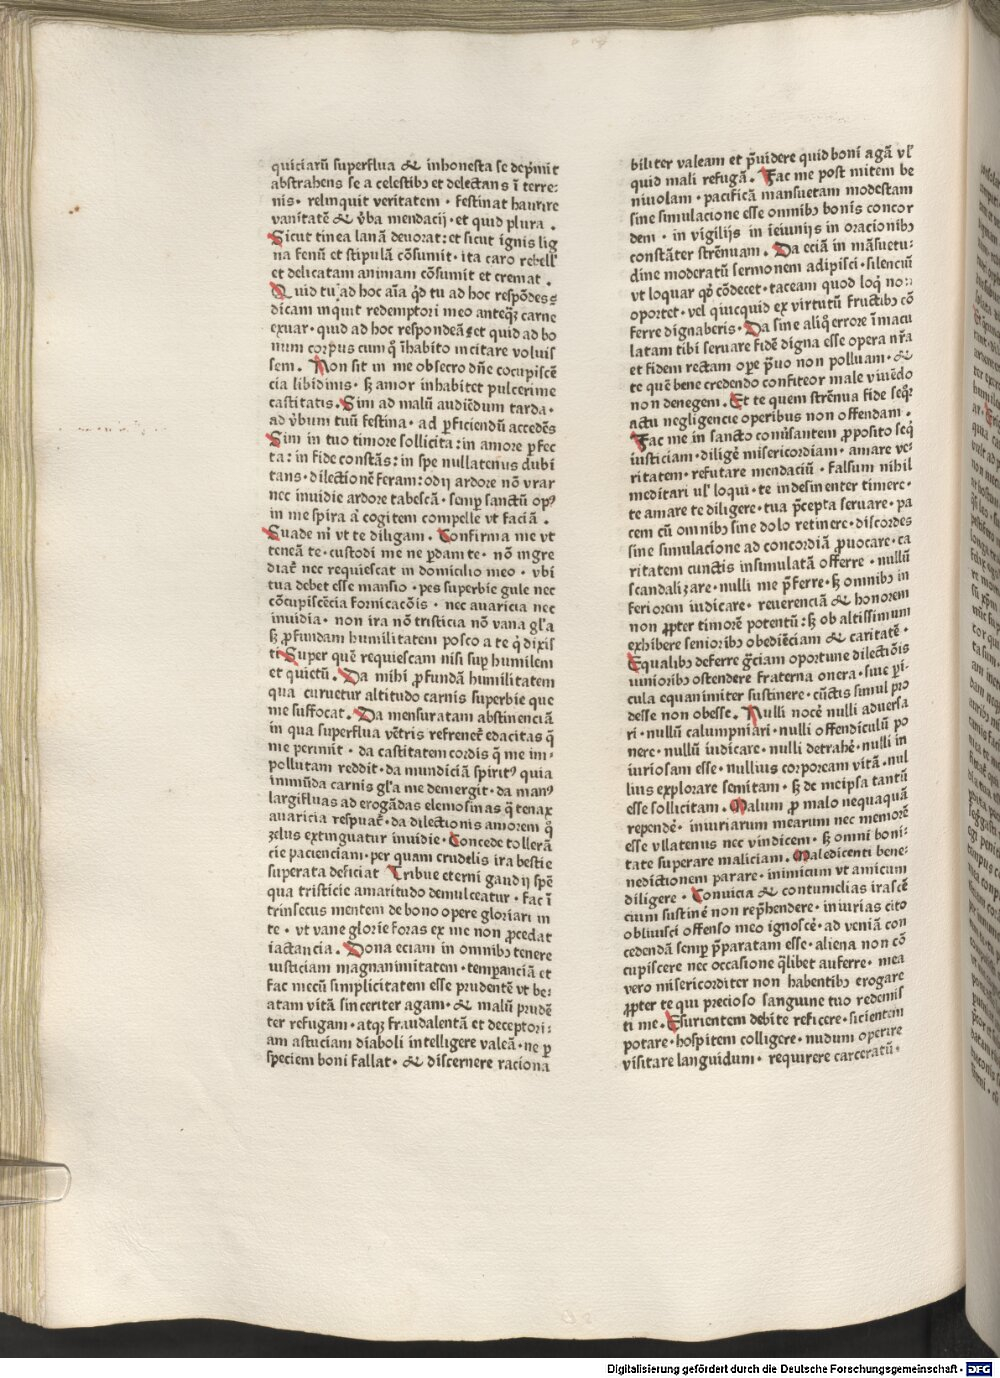 quiciarū superflua & inhonesta se dep̄mit
abstrahens se a celestibꝫ et delectans ī terre:
nis· relinquit veritatem · festinat haurire
vanitatē & v̄ba mendacij · et quid plura .
Sicut tinea lanā deuorat: et sicut ignis lig
na fenū et stipulā cōsumit · ita caro rebell'
et delicatam animam cōsumit et cremat .
Quid tu ad hoc aīa q̇d tu ad hoc respōdes ꝫ
dicam inquit redemptori meo anteqꝫ carne
exuar · quid ad hoc respondeā ꝫ et quid ad bo
num corpus cum q̇ īhabito incitare voluis
sem . Non sit in me obsecro dn̄e cōcupiscē
cia libidinis · sꝫ amor inhabitet pulcerime
castitatis . Sim ad malū audiēdum tarda ·
ad v̄bum tuū festina · ad ꝑficiendū accedēs
Sim in tuo timore sollicita: in amore ꝑfec
ta: in fide constās: in spe nullatenus dubi
tans · dilectionē feram: odij ardore nō vrar
nec inuidie ardore tabescā · semꝑ sanctū opꝰ
in me spira a̓ cogitem compelle vt faciā .
Suade m̓ vt te diligam . Confirma me vt
teneā te · custodi me ne ꝑdam te · nō ingre
diat̓ nec requiescat in domicilio meo · vbi
tua debet esse mansio · pes superbie gule nec
cōcupiscēcia fornicacōis · nec auaricia nec
inuidia · non ira nō tristicia nō vana gl̓a
sꝫ ꝓfundam humilitatem posco a te q̇ dixis
ti Super quē requiescam nisi suꝑ humilem
et quietū . Da mihi ꝓfundā humilitatem
qua curuetur altitudo carnis superbie que
me suffocat . Da mensuratam abstinenciā
in qua superflua vētris refrenet̓ edacitas q̄
me perimit · da castitatem cordis q̄ me im-
pollutam reddit · da mundiciā spiritꝰ quia
immūda carnis gl̓a me demergit · da manꝰ
largifluas ad erogādas elemosinas q̄ tenax
auaricia respuat̓ · da dilectionis amorem q̄
zelus extinguatur inuidie · Concede tollerā
cie pacienciam · per quam crudelis ira bestie
superata deficiat Tribue eterni gaudij spē
qua tristicie amaritudo demulceatur · fac ī
trinsecus mentem de bono opere gloriari in
te · vt vane glorie foras ex me non ꝓcedat
iactancia . Dona eciam in omnibꝫ tenere
iusticiam magnanimitatem · temꝑanciā et
fac mecū simplicitatem esse prudentē vt be:
atam vitā sinceriter agam · & malū prudē
ter refugam · atqꝫ fraudalentā et deceptori:
am astuciam diaboli intelligere valeā · ne ꝑ
speciem boni fallat · & discernere raciona
biliter valeam et p̄uidere quid boni agā vl̓
quid mali refugā . Fac me post mitem be
niuolam · pacificā mansuetam modestam
sine simulacione esse omnibꝫ bonis concor
dem · in vigilijs in ieiunijs in oracionibꝫ
constāter strēnuam . Da eciā in māsuetu:
dine moderatū sermonem adipisci · silenciū
vt loquar qȯ cōdecet · taceam quod loq̇ non
oportet · vel quicquid ex virtutū fructibꝫ cō
ferre dignaberis · Da sine aliq̇ errore īmacu
latam tibi seruare fidē digna esse opera nr̄a
et fidem rectam oꝑe p̄uo non polluam · &
te quē bene credendo confiteor male viuēdo
non denegem . Et te quem strēnua fide seq̇r
actu negligencie operibus non offendam .
Fac me in sancto conu̓santem ꝓposito seq̇
iusticiam · diligē misericordiam · amare ve:
ritatem · refutare mendaciū · falsum nihil
meditari vl̓ loqui · te indesinenter timere ·
te amare te diligere · tua p̄cepta seruare · pa
cem cū omnibꝫ sine dolo retinere · discordes
sine simulacione ad concordiā ꝓuocare · ca
ritatem cunctis insimulatā offerre · nullū
scandalizare · nulli me p̄ferre · sꝫ omnibꝫ in
feriorem iudicare · reuerenciā & honorem
non ꝓpter timorē potentū: sꝫ ob altissimum
exhibere senioribꝫ obediēciam & caritatē ·
Equalibꝫ deferre gr̄ciam oportune dilectiōis
iunioribꝫ ostendere fraterna onera · siue ꝑi-
cula equanimiter sustinere · cūctis simul pro
desse non obesse . Nulli nocē nulli aduersa
ri · nullū calumpniari · nulli offendiculū po
nere · nullū iudicare · nulli detrahē · nulli in
iuriosam esse · nullius corpoream vitā · nul
lius explorare semitam · sꝫ de meipsa tantū
esse sollicitam . Malum ꝓ malo nequaquā
rependē · iniuriarum mearum nec memorē
esse vllatenus nec vindicem · sꝫ omni boni:
tate superare maliciam . Maledicenti bene:
nedictionem parare · inimicum vt amicum
diligere · Conuicia & contumelias irascē
cium sustinē non rep̄hendere · iniurias cito
obliuisci offenso meo ignoscē · ad veniā con
cedendā semꝑ p̄paratam esse · aliena non cō
cupiscere nec occasione q̇libet auferre · mea
vero misericorditer non habentibꝫ erogare
ꝓpter te qui precioso sanguine tuo redemis
ti me · Esurientem debite reficere · sicientem
potare · hospitem colligere · nudum operire
visitare languidum · requirere carceratū ·
Digitalisierung gefördert durch die Deutsche Forschungsgemeinschaft - DFG